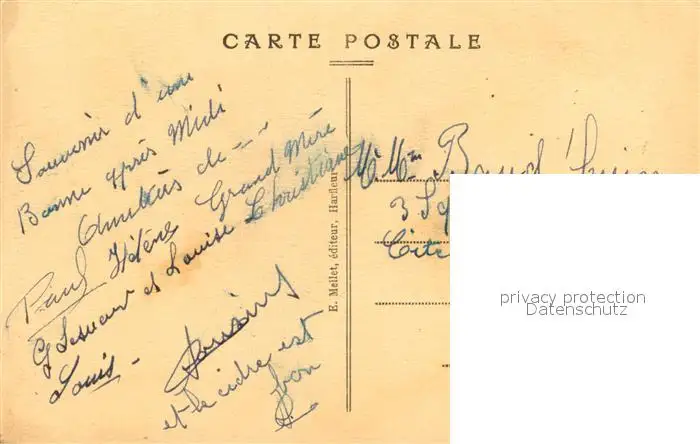 CARTE POSTALE
Souvenir d'une
Bonne après Midi
Amitiés de ---
Grand Mère
Paul Hélène Christiane
G Lesueur et Louise
Louis -
et le cidre est
bon
E. Mellet, éditeur, Harfleur
M. Mme
3
Cité
privacy protection
Datenschutz